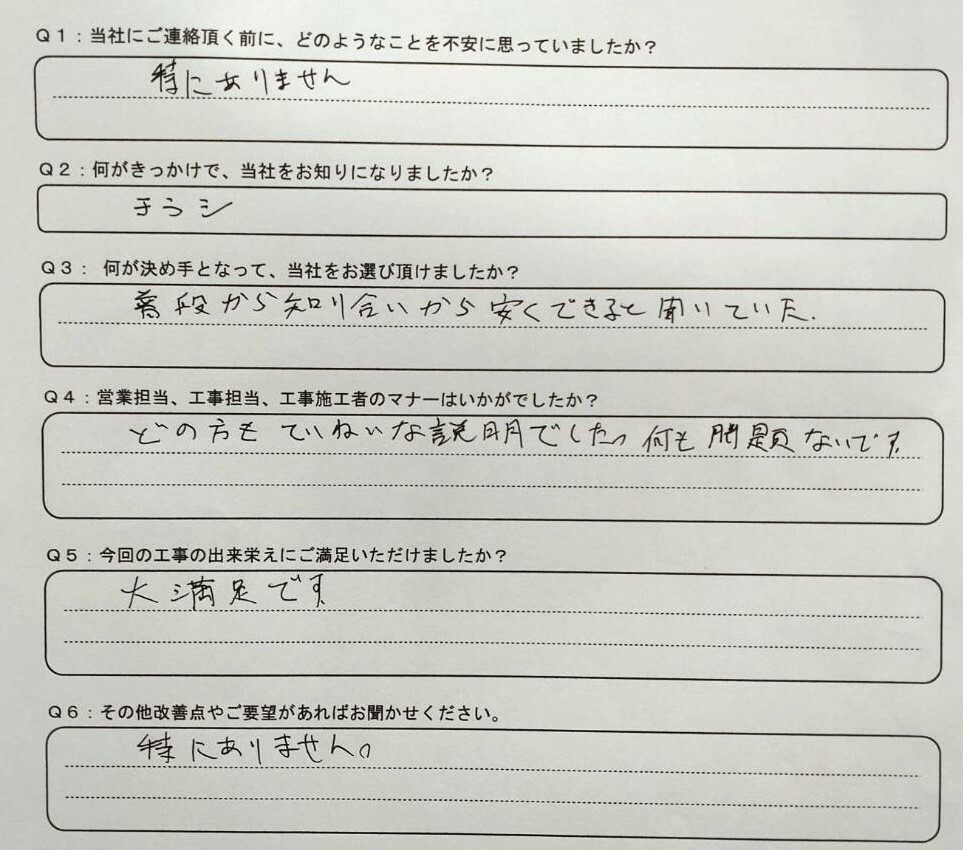 Q1:当社にご連絡頂く前に、どのようなことを不安に思っていましたか?
特にありません
Q2:何がきっかけで、当社をお知りになりましたか?
チラシ
Q3: 何が決め手となって、当社をお選び頂けましたか?
普段から知り合いから安くできると聞いていた.
Q4:営業担当、工事担当、工事施工者のマナーはいかがでしたか?
どの方もていねいな説明でした。何も問題ないです.
Q5:今回の工事の出来栄えにご満足いただけましたか?
大満足です.
Q6:その他改善点やご要望があればお聞かせください。
特にありません。